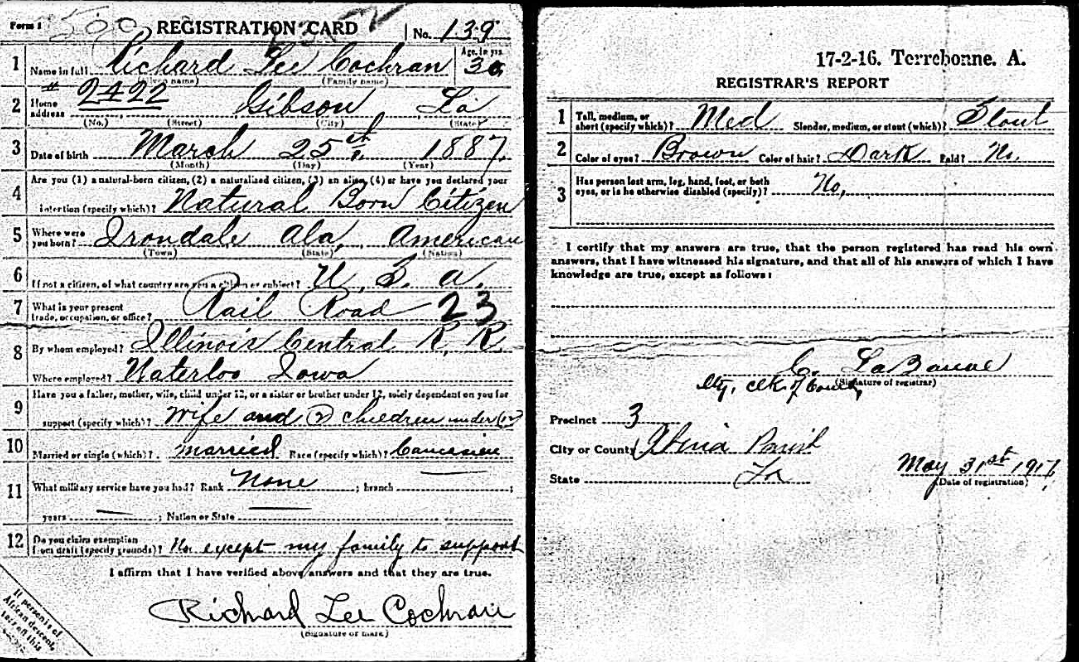 Form 1 590 REGISTRATION CARD No. 139
1 Name in full Richard Lee Cochran Age, in yrs. 30
(Given name) (Family name)
2 Home address 2422 Gibson La
(No.) (Street) (City) (State)
3 Date of birth March 25th 1887
(Month) (Day) (Year)
4 Are you (1) a natural-born citizen, (2) a naturalized citizen, (3) an alien, (4) or have you declared your
intention (specify which)? Natural Born Citizen
5 Where were you born? Irondale Ala, American
(Town) (State) (Nation)
6 If not a citizen, of what country are you a citizen or subject? U. S. a.
7 What is your present trade, occupation, or office? Rail Road 23
8 By whom employed? Illinois Central R. R.
Where employed? Waterloo Iowa
9 Have you a father, mother, wife, child under 12, or a sister or brother under 12, solely dependent on you for
support (specify which)? Wife and 2 children under 12
10 Married or single (which)? married Race (specify which)? Caucasian
11 What military service have you had? Rank None ; branch ;
years — ; Nation or State —
12 Do you claim exemption from draft (specify grounds)? No. except my family to support
I affirm that I have verified above answers and that they are true.
Richard Lee Cochran
(Signature or mark)
If person is of
African descent,
tear off this
17-2-16. Terrebonne. A.
REGISTRAR'S REPORT
1 Tall, medium, or short (specify which)? Med Slender, medium, or stout (which)? Stout
2 Color of eyes? Brown Color of hair? Dark Bald? No.
3 Has person lost arm, leg, hand, foot, or both eyes, or is he otherwise disabled (specify)? No,
I certify that my answers are true, that the person registered has read his own
answers, that I have witnessed his signature, and that all of his answers of which I have
knowledge are true, except as follows:
C.
(Signature of registrar)
Dty. Clk of Court,
Precinct 3
City or County Iberia Parish
State La
May 31st 1917
(Date of registration)